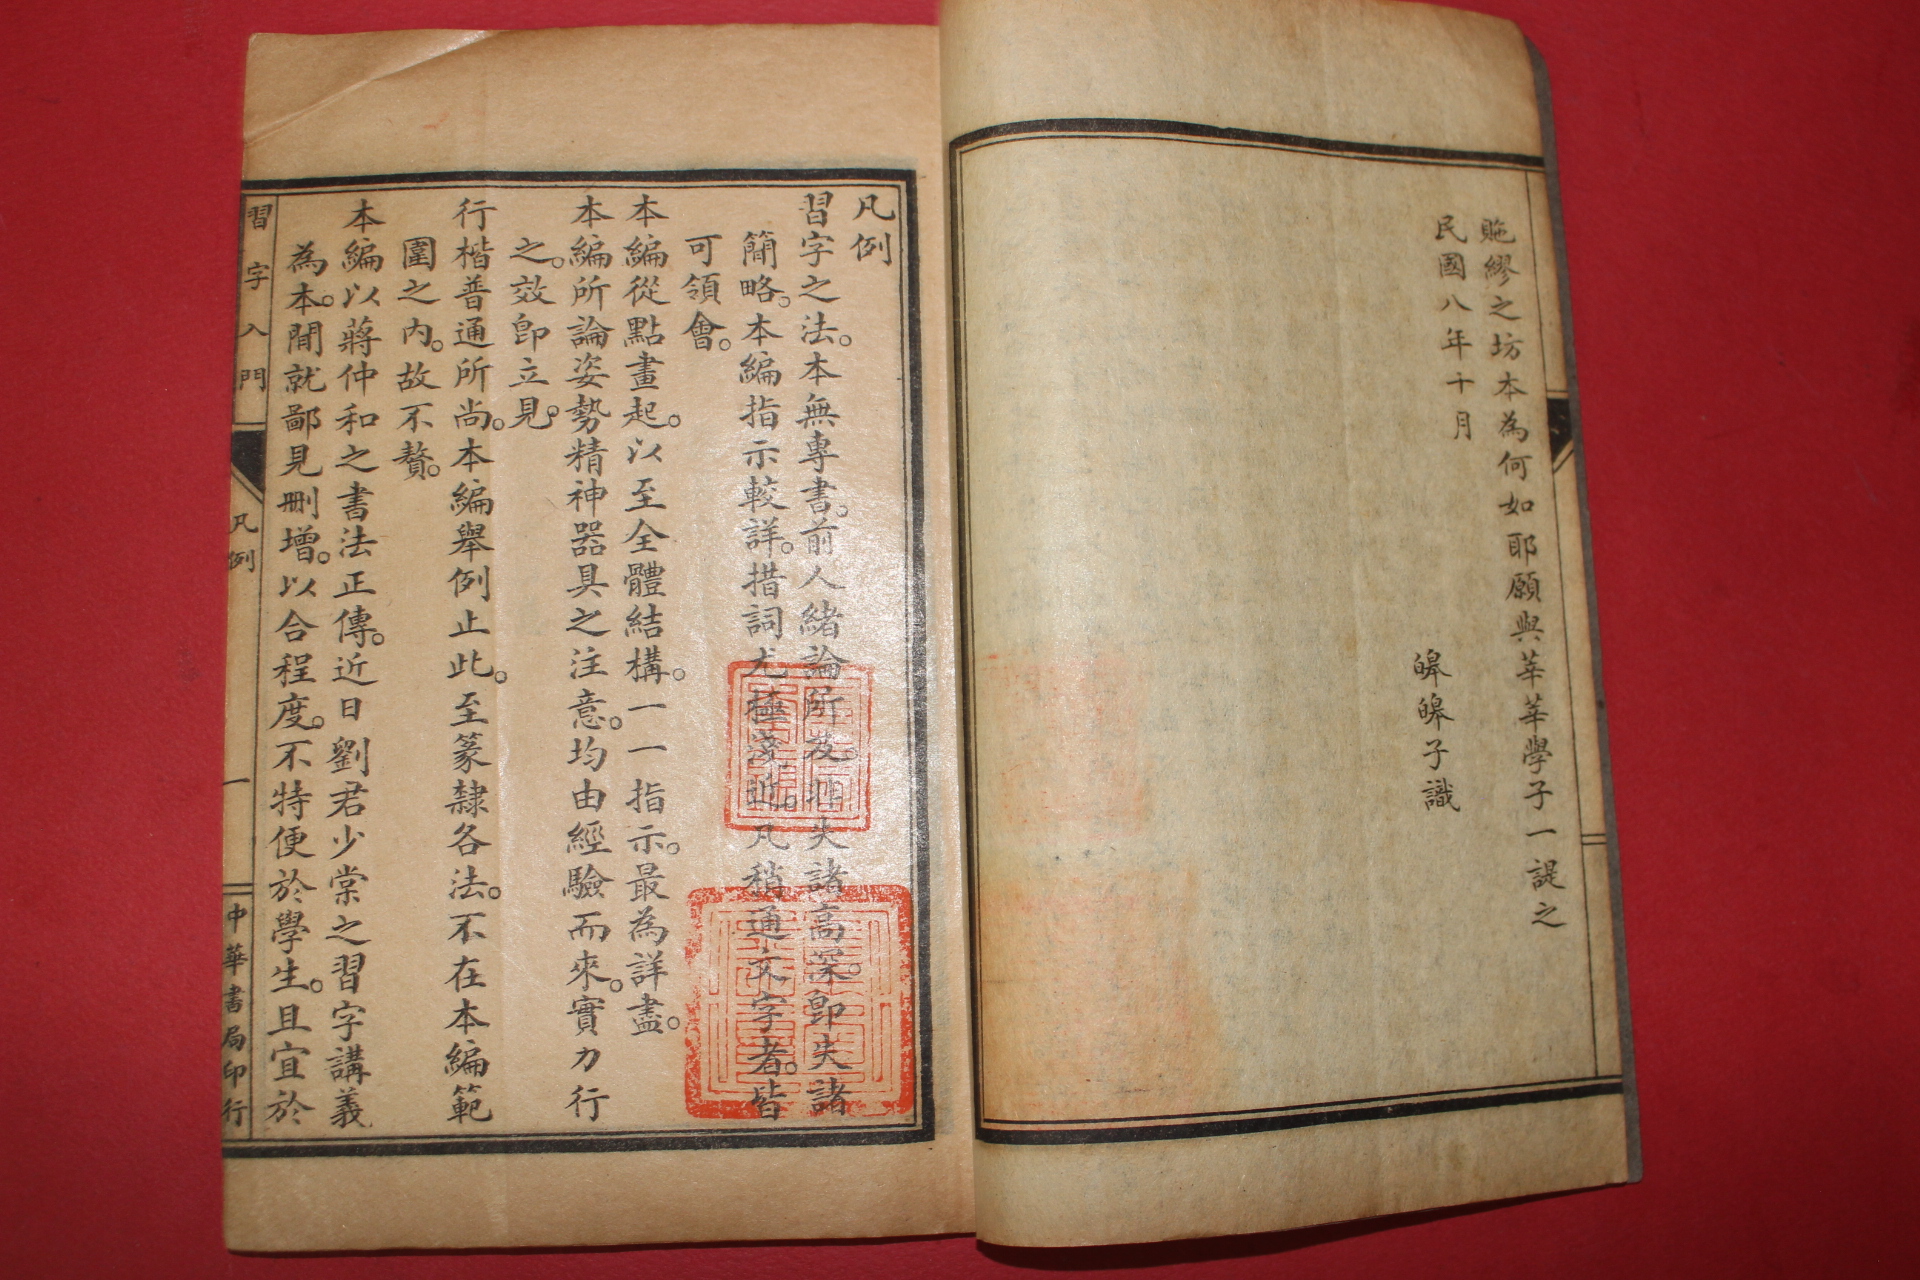 貤繆之坊本為何如耶願與莘莘學子一諟之
民國八年十月
皞皞子識
凡例
習字之法。本無專書。前人緒論所及。非失諸高深。卽失諸
簡略。本編指示較詳。措詞尤極淺近。凡稍通文字者。皆
可領會。
本編從點畫起。以至全體結構。一一指示。最為詳盡。
本編所論姿勢精神器具之注意。均由經驗而來。實力行
之。效卽立見。
行楷普通所尚。本編舉例止此。至篆隸各法。不在本編範
圍之內。故不贅。
本編以蔣仲和之書法正傳。近日劉君少棠之習字講義
為本。間就鄙見刪增。以合程度。不特便於學生。且宜於
習字入門
凡例
一
中華書局印行